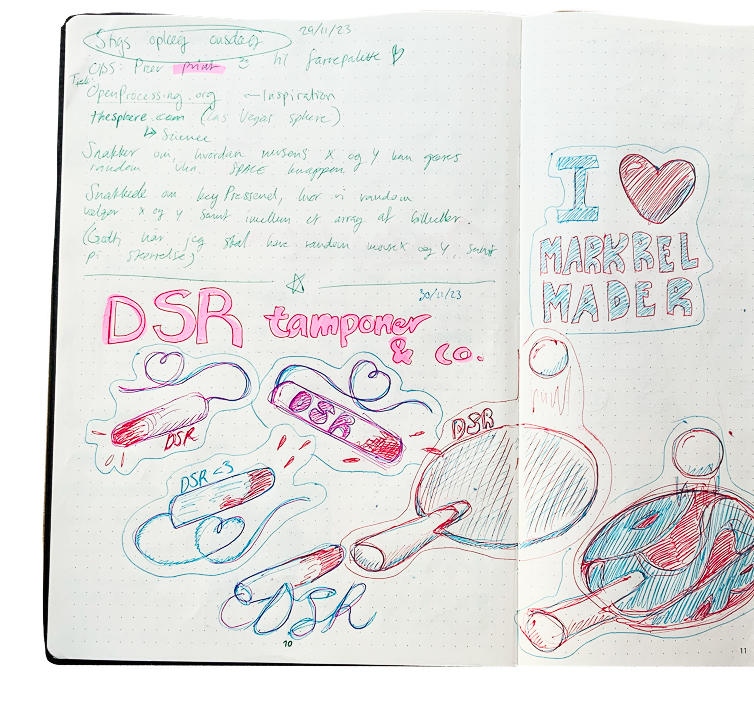 Stigs oplæg onsdag
29/11/23
OBS: Prøv print til farvepalette
OpenProcessing.org — Inspiration
thesphere.com (Las Vegas sphere)
↳ Science
Snakker om, hvordan musens X og Y kan gøres
random via SPACE knappen.
Snakkede om keyPressed, hvor vi random
vælger x og y samt imellem et array af billeder.
(Godt, når jeg skal have random mouseX og Y, samt
på størrelse)
30/11/23
DSR tamponer
& co.
DSR
DSR
DSR <3
DSR
DSR
I
MARKREL
MADER
10
11